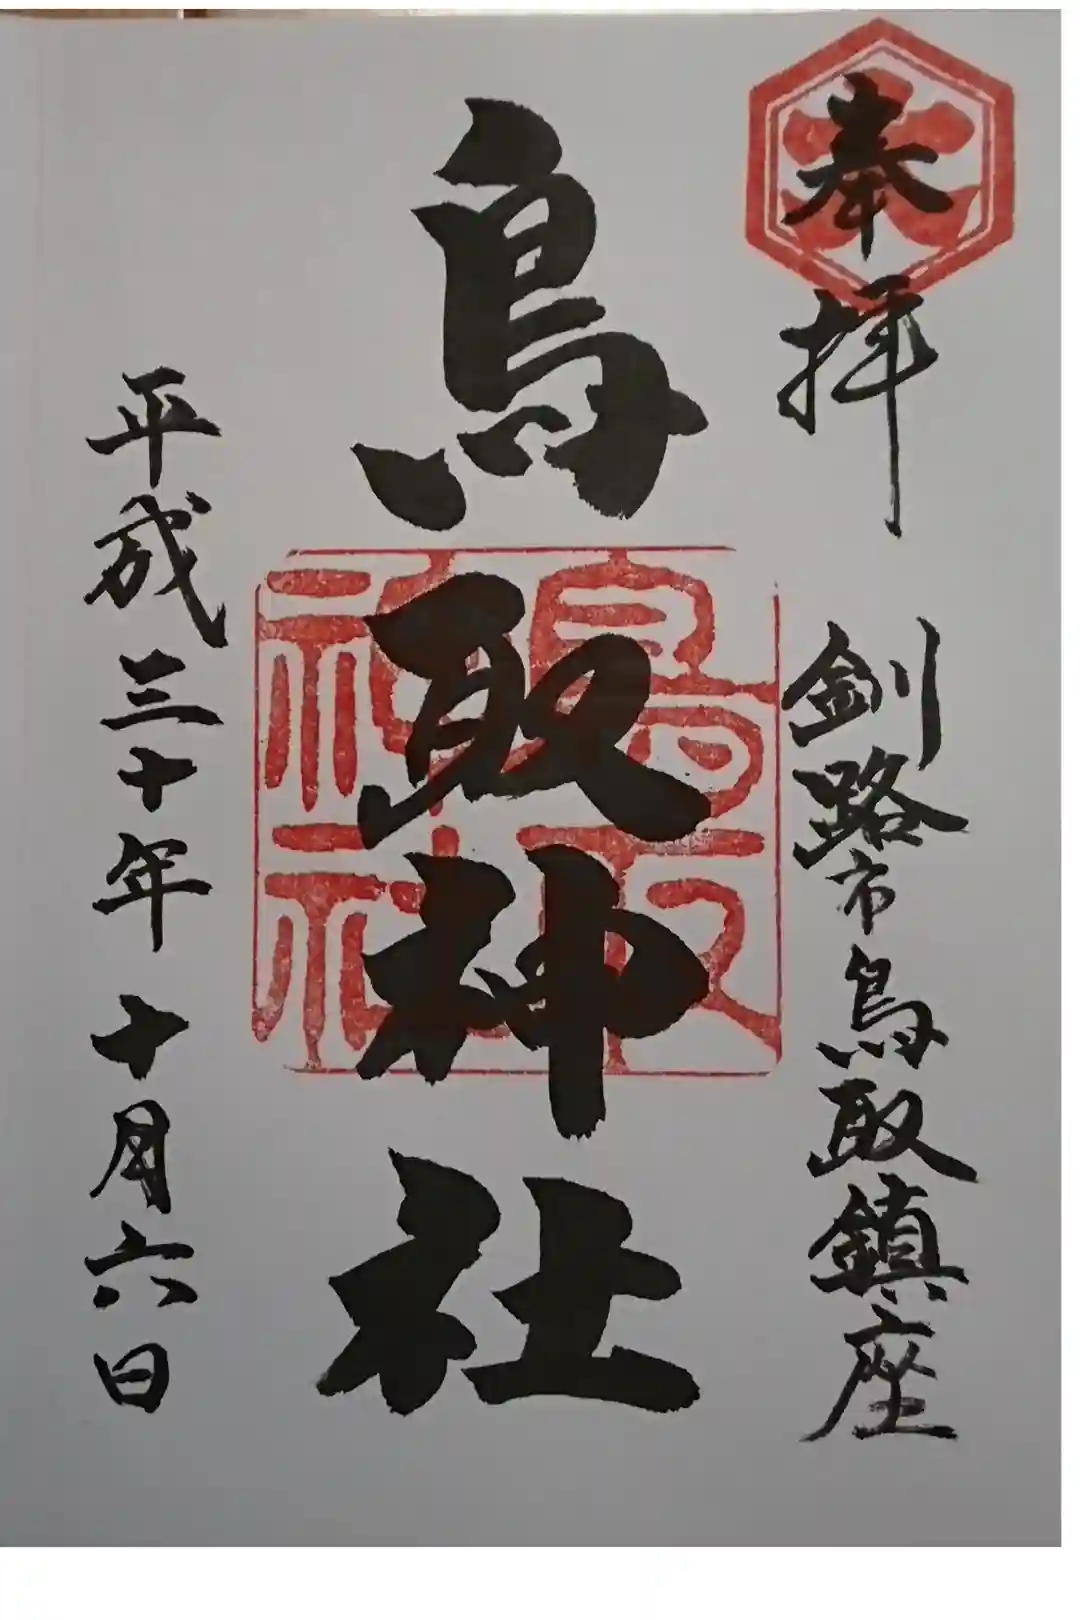 奉拝
釧路市鳥取鎮座
鳥取神社
鳥取神社
平成三十年十月六日